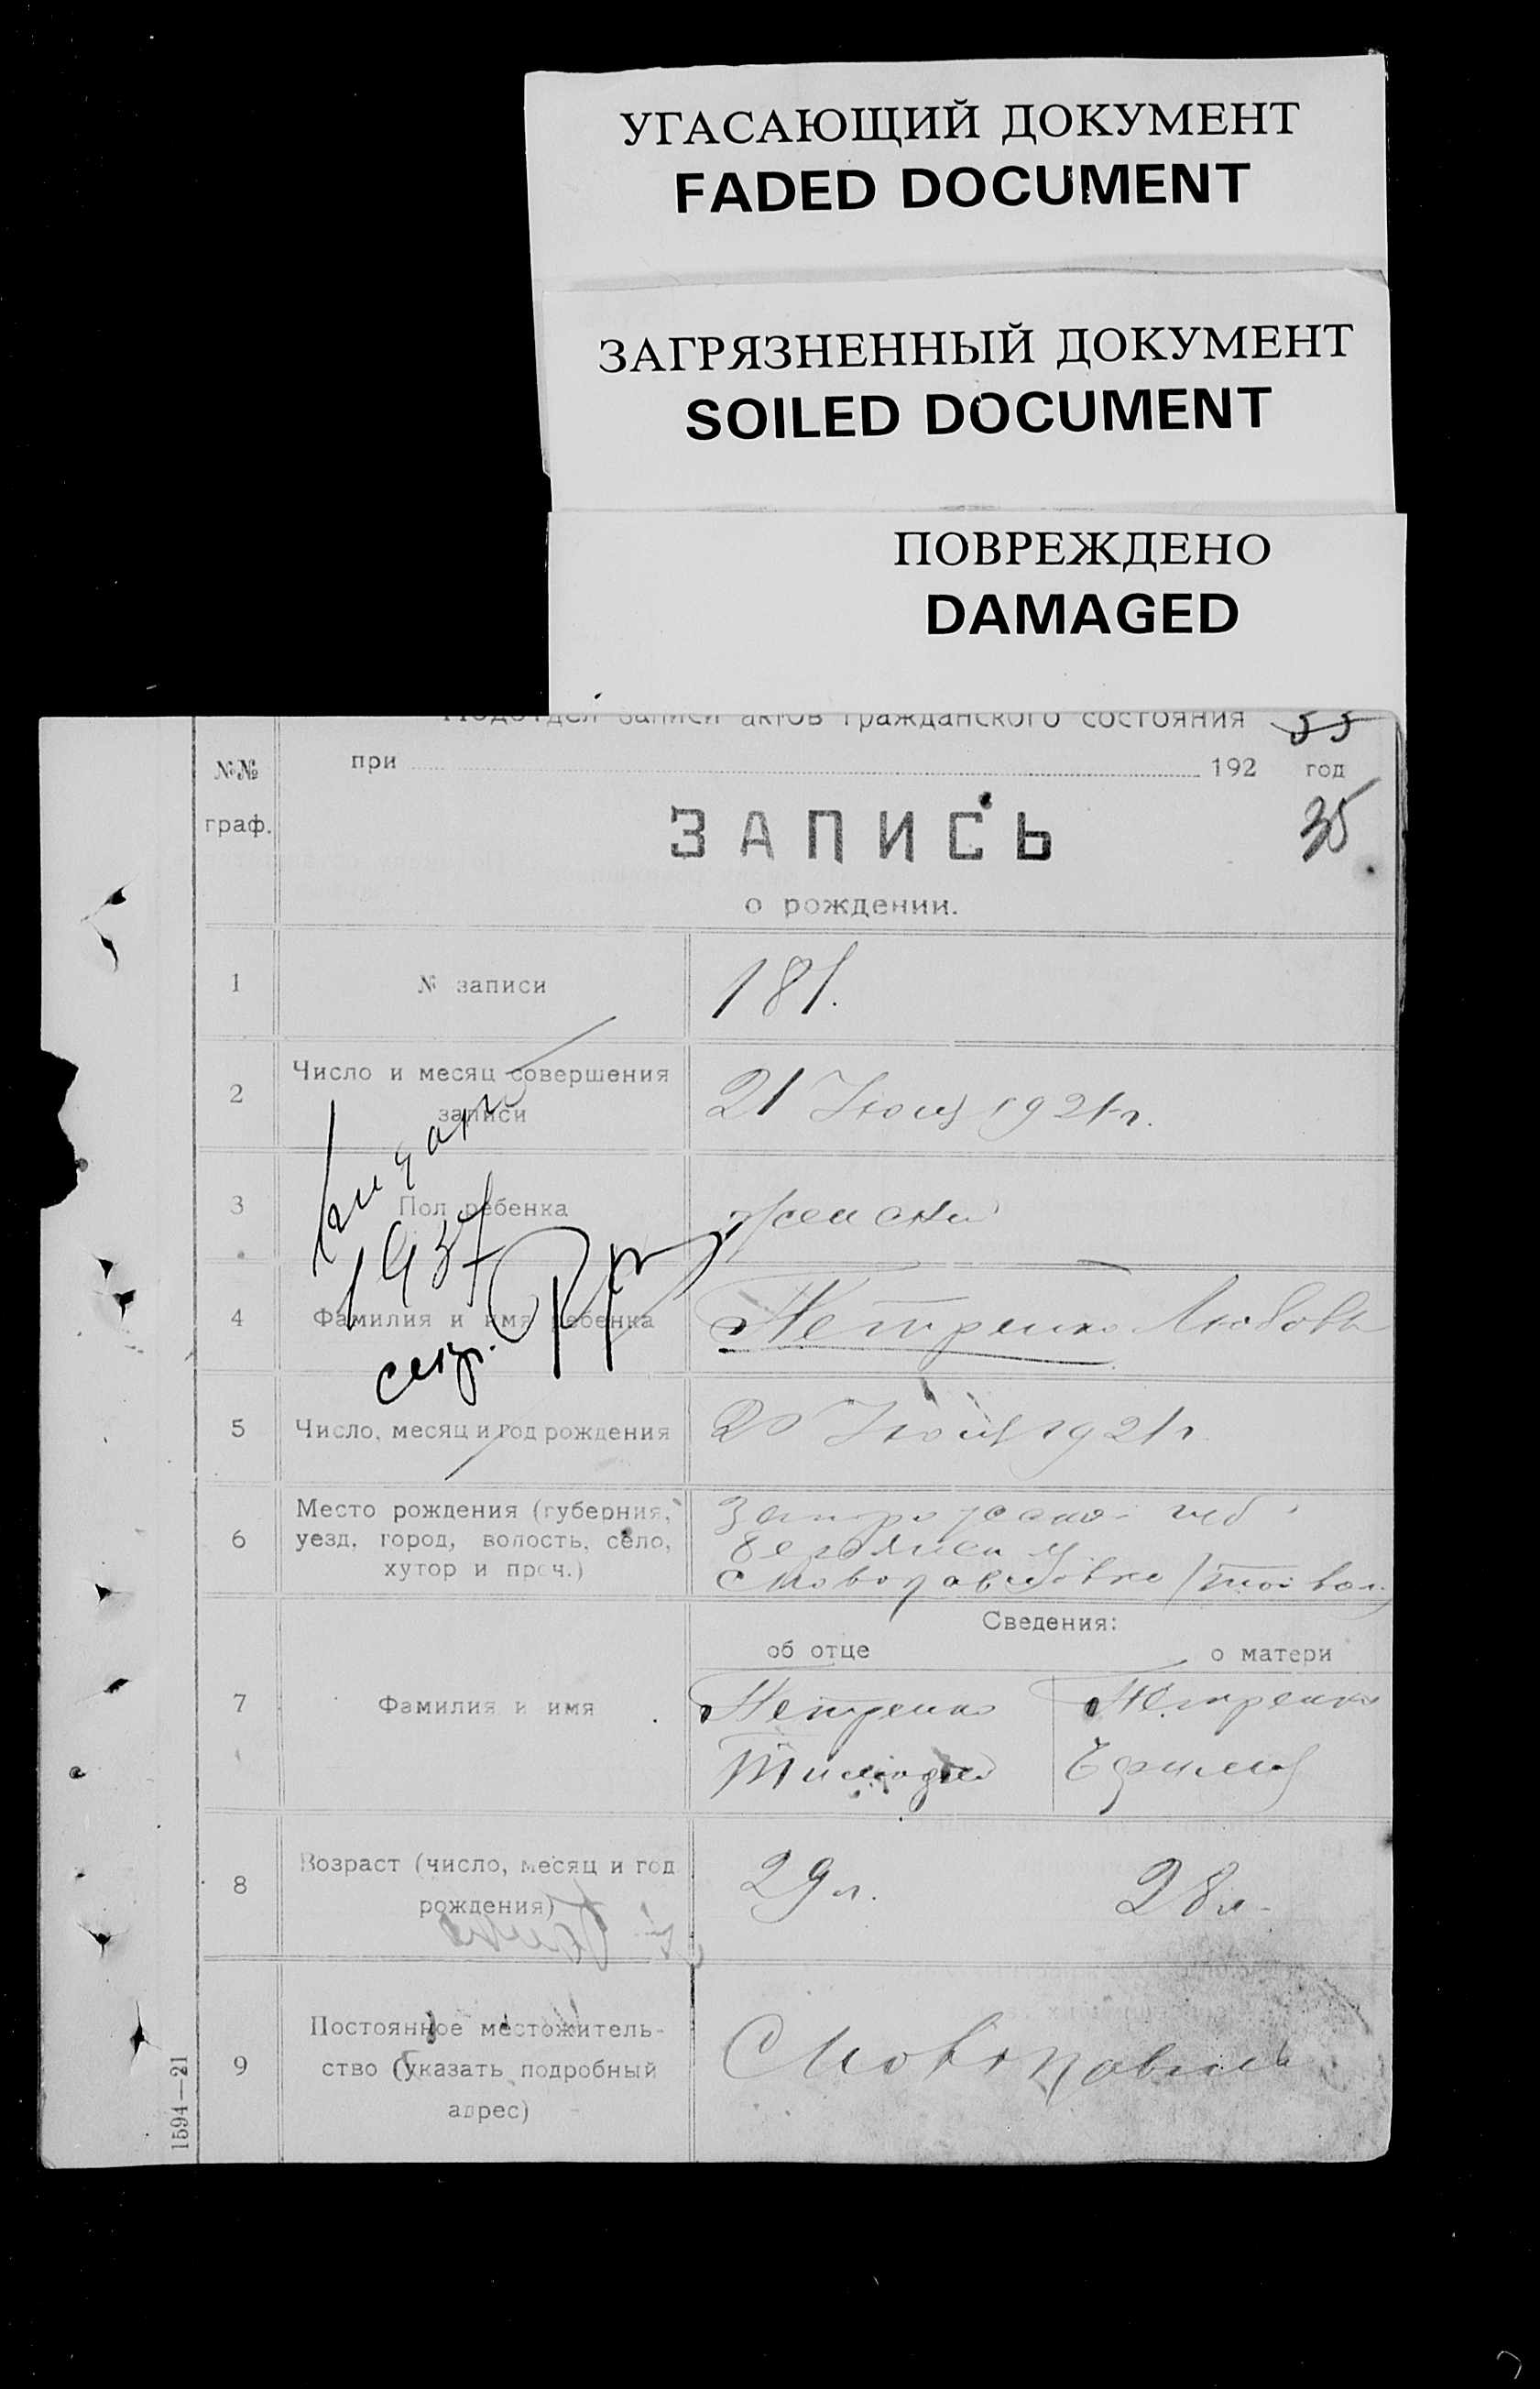 УГАСАЮЩИЙ ДОКУМЕНТ
FADED DOCUMENT
ЗАГРЯЗНЕННЫЙ ДОКУМЕНТ
SOILED DOCUMENT
ПОВРЕЖДЕНО
DAMAGED
Подотдел записи актов гражданского состояния 55
№№ граф.
при 192 год
35
ЗАПИСЬ
о рождении.
1 № записи 181.
2 Число и месяц совершения
записи
21 Июня 1921 г.
3 Пол ребенка
1937
секр.
4 Фамилия и имя ребенка Петренко Любовь
5 Число, месяц и год рождения 20 Июня 1921 г
6 Место рождения (губерния,
уезд, город, волость, село,
хутор и проч.)
губ
Сведения:
об отце о матери
7 Фамилия и имя
Петренко Петренко
Тимофей
8 Возраст (число, месяц и год
рождения)
29 л. 28 л.
9 Постоянное местожитель-
ство (указать подробный
адрес)
1594—21